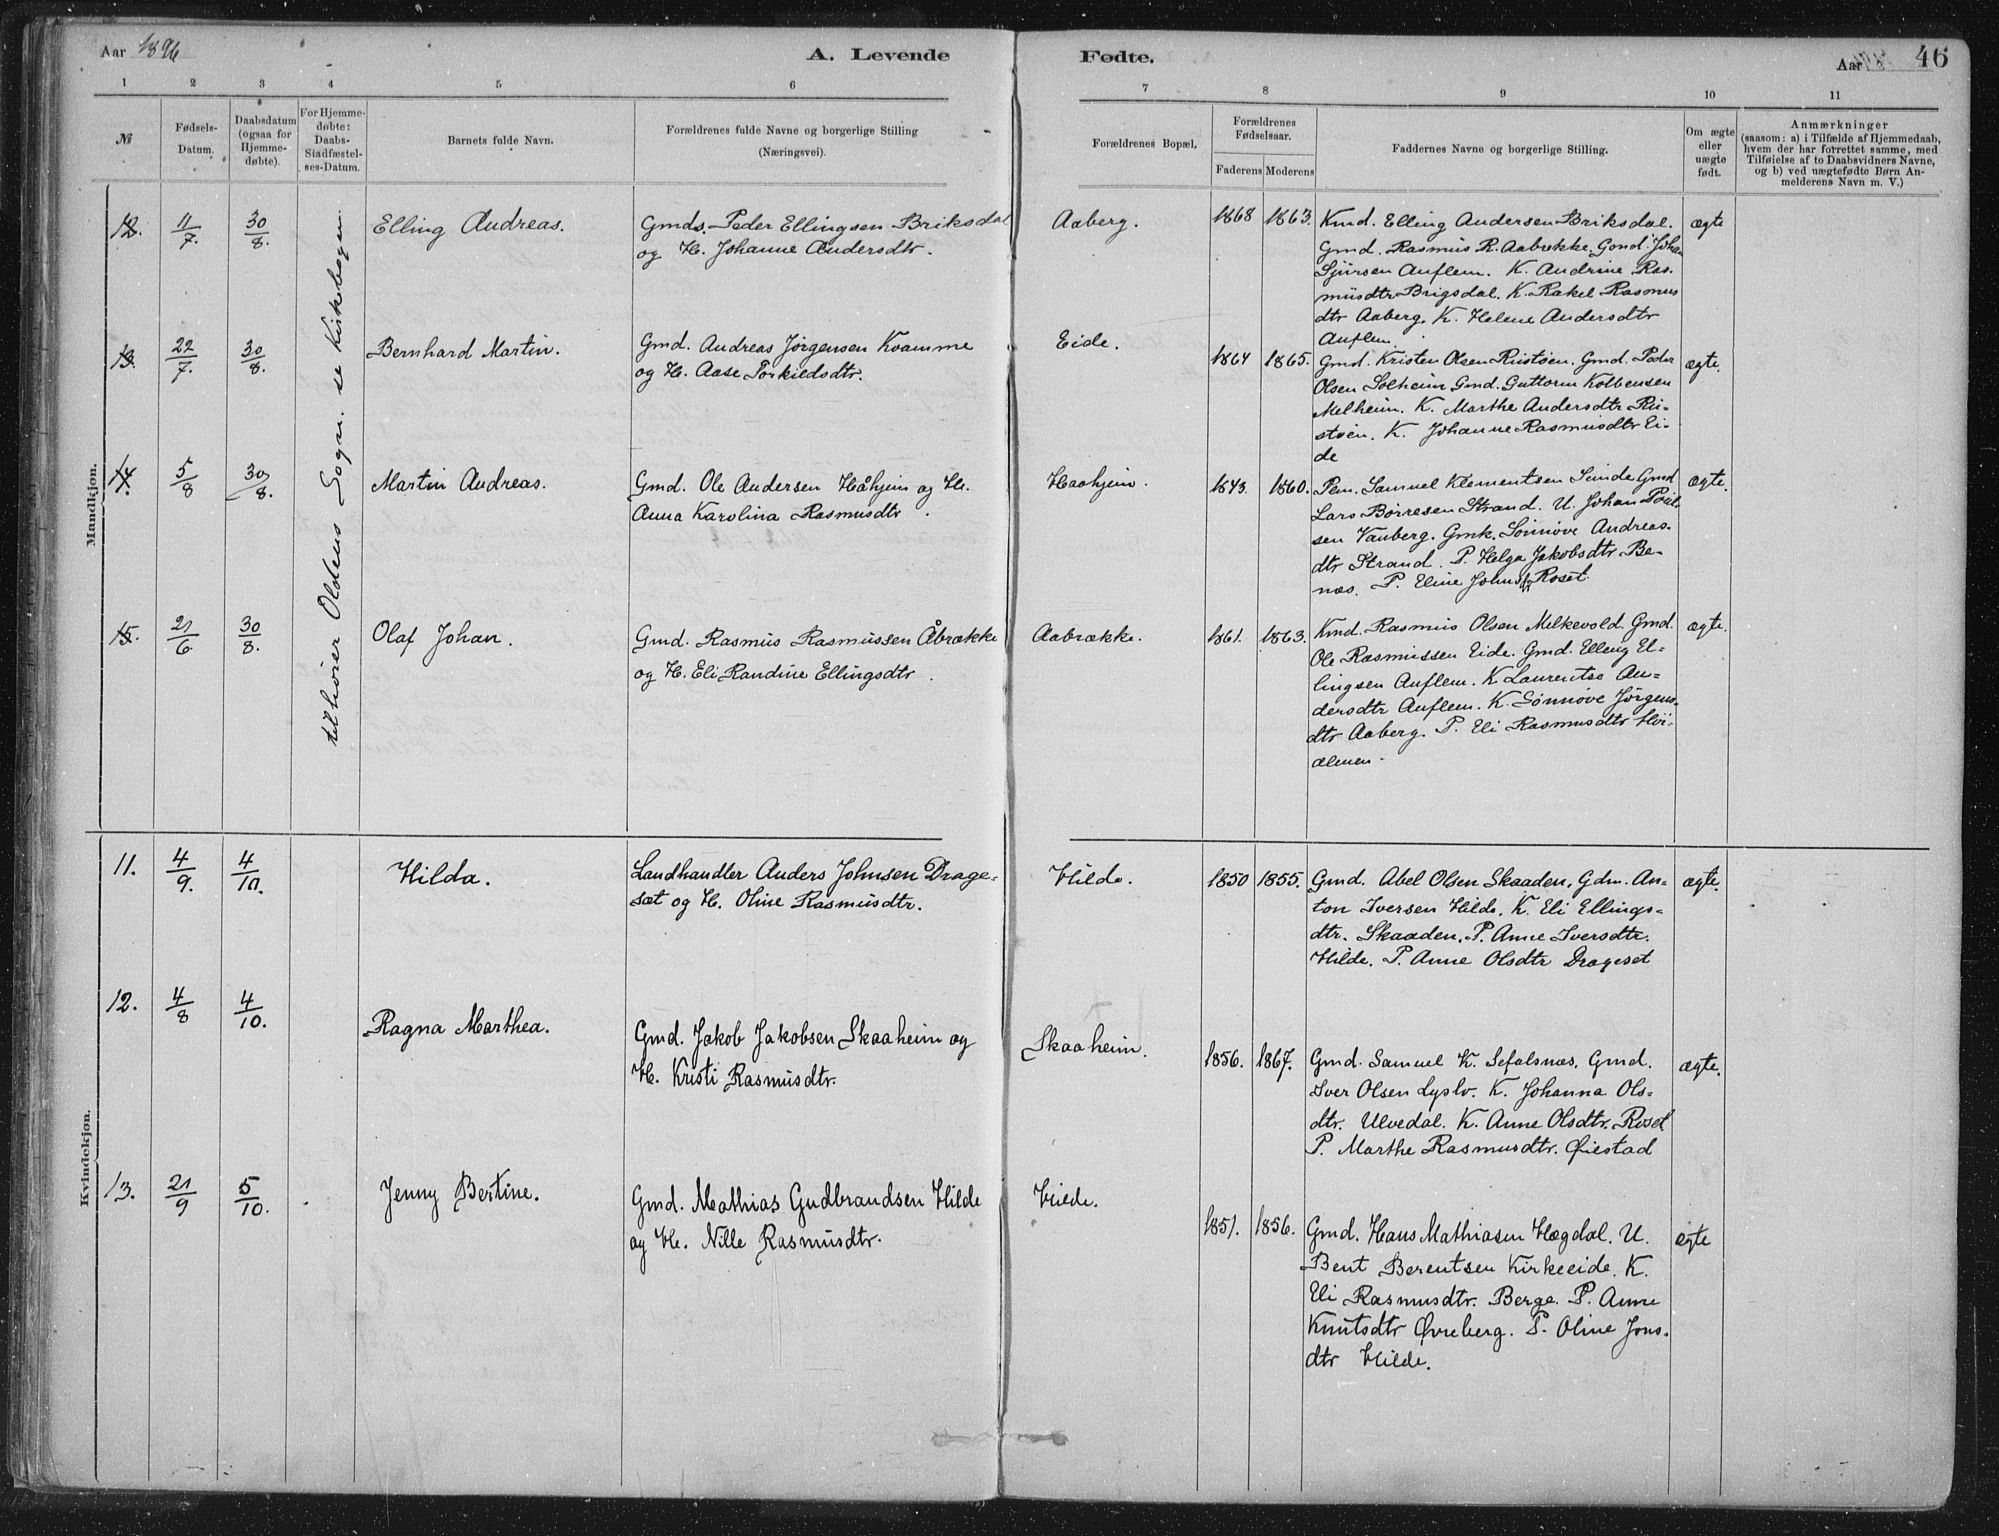 Aar 1896
A. Levende
Fødte.
Aar
46
1
2
3
4
5
6
7
8
9
10
11
№
Fødsels-
Datum.
Daabsdatum
(ogsaa for
Hjemme-
døbte).
For Hjemme-
døbte:
Daabs-
Stadfæstel-
ses-Datum.
Barnets fulde Navn.
Forældrenes fulde Navne og borgerlige Stilling
(Næringsvei).
Forældrenes Bopæl.
Forældrenes
Fødselsaar.
Faderens
Moderens
Faddernes Navne og borgerlige Stilling.
Om ægte
eller
uægte
født.
Anmærkninger
(saasom: a) i Tilfælde af Hjemmedaab,
hvem der har forrettet samme, med
Tilføielse af to Daabsvidners Navne,
og b) ved uægtefødte Børn An-
melderens Navn m. V.)
Mandkjøn.
tilhører Oldens Sogn: se Kirkebogen
12. 11/7. 30/8. Elling Andreas.
Gmds. Peder Ellingsen Briksdal
og H. Johanne Andersdtr.
Aaberg. 1868 1863.
Kmd. Elling Andersen Briksdal.
Gmd. Rasmus R. Aabrekke. Gmd. Johan
Sjursen Auflem. K. Andrine Ras-
musdtr Brigsdal. K. Rakel Rasmus
dtr Aaberg. K. Helene Andersdtr
Auflem
ægte
13. 22/7. 30/8. Bernhard Martin.
Gmd. Andreas Jørgensen Kvamme
og H. Aase Torkildsdtr.
Eide. 1864 1865.
Gmd. Kristen Olsen Rustøen. Gmd. Peder
Olsen Solheim Gmd. Guttorm Kolbensen
Melheim. K. Marthe Andersdtr Ru-
støen. K. Johanne Rasmusdtr Ei-
de
ægte.
14. 5/8 30/8. Martin Andreas.
Gmd. Ole Andersen Håhjem og H.
Anna Karolina Rasmusdtr.
Haahjem. 1843. 1860.
Pen. Samuel Klementsen Sunde Gmd
Lars Børresen Strand. U. Johan Poul
sen Vanberg. Gmk. Sønnøve Andreas-
dtr Strand. P. Helga Jakobsdtr Be-
næs. P. Eline Johnsdtr Roset.
ægte.
15. 21/6 30/8. Olaf Johan.
Gmd. Rasmus Rasmussen Åbrække
og H. Eli Randine Ellingsdtr.
Aabrække. 1861. 1863.
Kmd. Rasmus Olsen Melkevold. Gmd.
Ole Rasmussen Eide. Gmd. Elleng El-
lingsen Auflem. K Laurentse An-
dersdtr Auflem. K. Sønnøve Jørgens-
dtr Aaberg. P. Eli Rasmusdtr Hvi-
almen.
ægte.
Kvindekjøn.
11. 4/9. 4/10. Hilda.
Landhandler Anders Johnsen Drage-
sæt og H. Oline Rasmusdtr.
Hilde. 1850 1855.
Gmd. Abel Olsen Skaaden, Gdm. An-
ton Iversen Hilde. K. Eli Ellings-
dtr. Skaaden. P. Anne Iversdtr.
Hilde. P. Anne Olsdtr Drageset
ægte.
12. 4/8 4/10. Ragna Marthea.
Gmd. Jakob Jakobsen Skaaheim og
H. Kristi Rasmusdtr.
Skaaheim. 1856. 1867.
Gmd. Samuel K. Sefalsnæs. Gmd.
Iver Olsen Lyslo. K. Johanna Ols-
dtr. Ulvedal. K. Anne Olsdtr. Roset
P. Marthe Rasmusdtr. Øiestad
ægte.
13. 21/9 5/10. Jenny Bertine.
Gmd. Mathias Gudbrandsen Hilde
og H. Nille Rasmusdtr.
Hilde. 1851. 1856.
Gmd. Hans Mathiasen Hægdal. U.
Bent Berentsen Kirkeeide. K.
Eli Rasmusdtr. Berge. P. Anne
Knutsdtr Øvreberg. P. Oline Jons-
dtr Hilde.
ægte